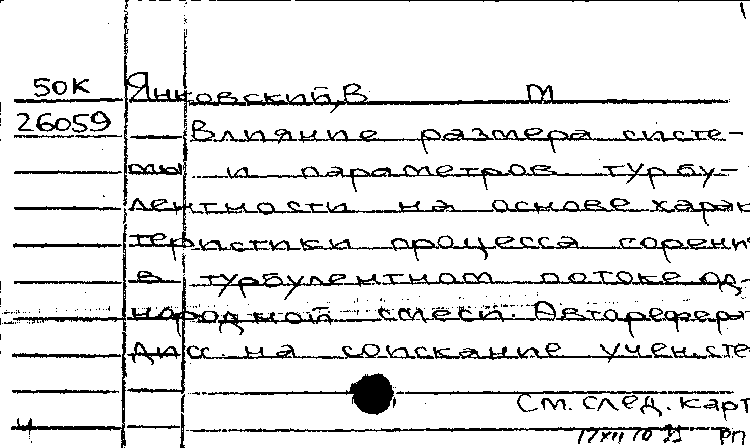 50К Янковский, В М
26059 Влияние размера систе-
мы и параметров турбу-
лентности на основе харак
теристики процесса горени
в турбулентном потоке од-
нородной смеси. Автореферат
дисс. на соискание учен. сте
См. след. карт
4